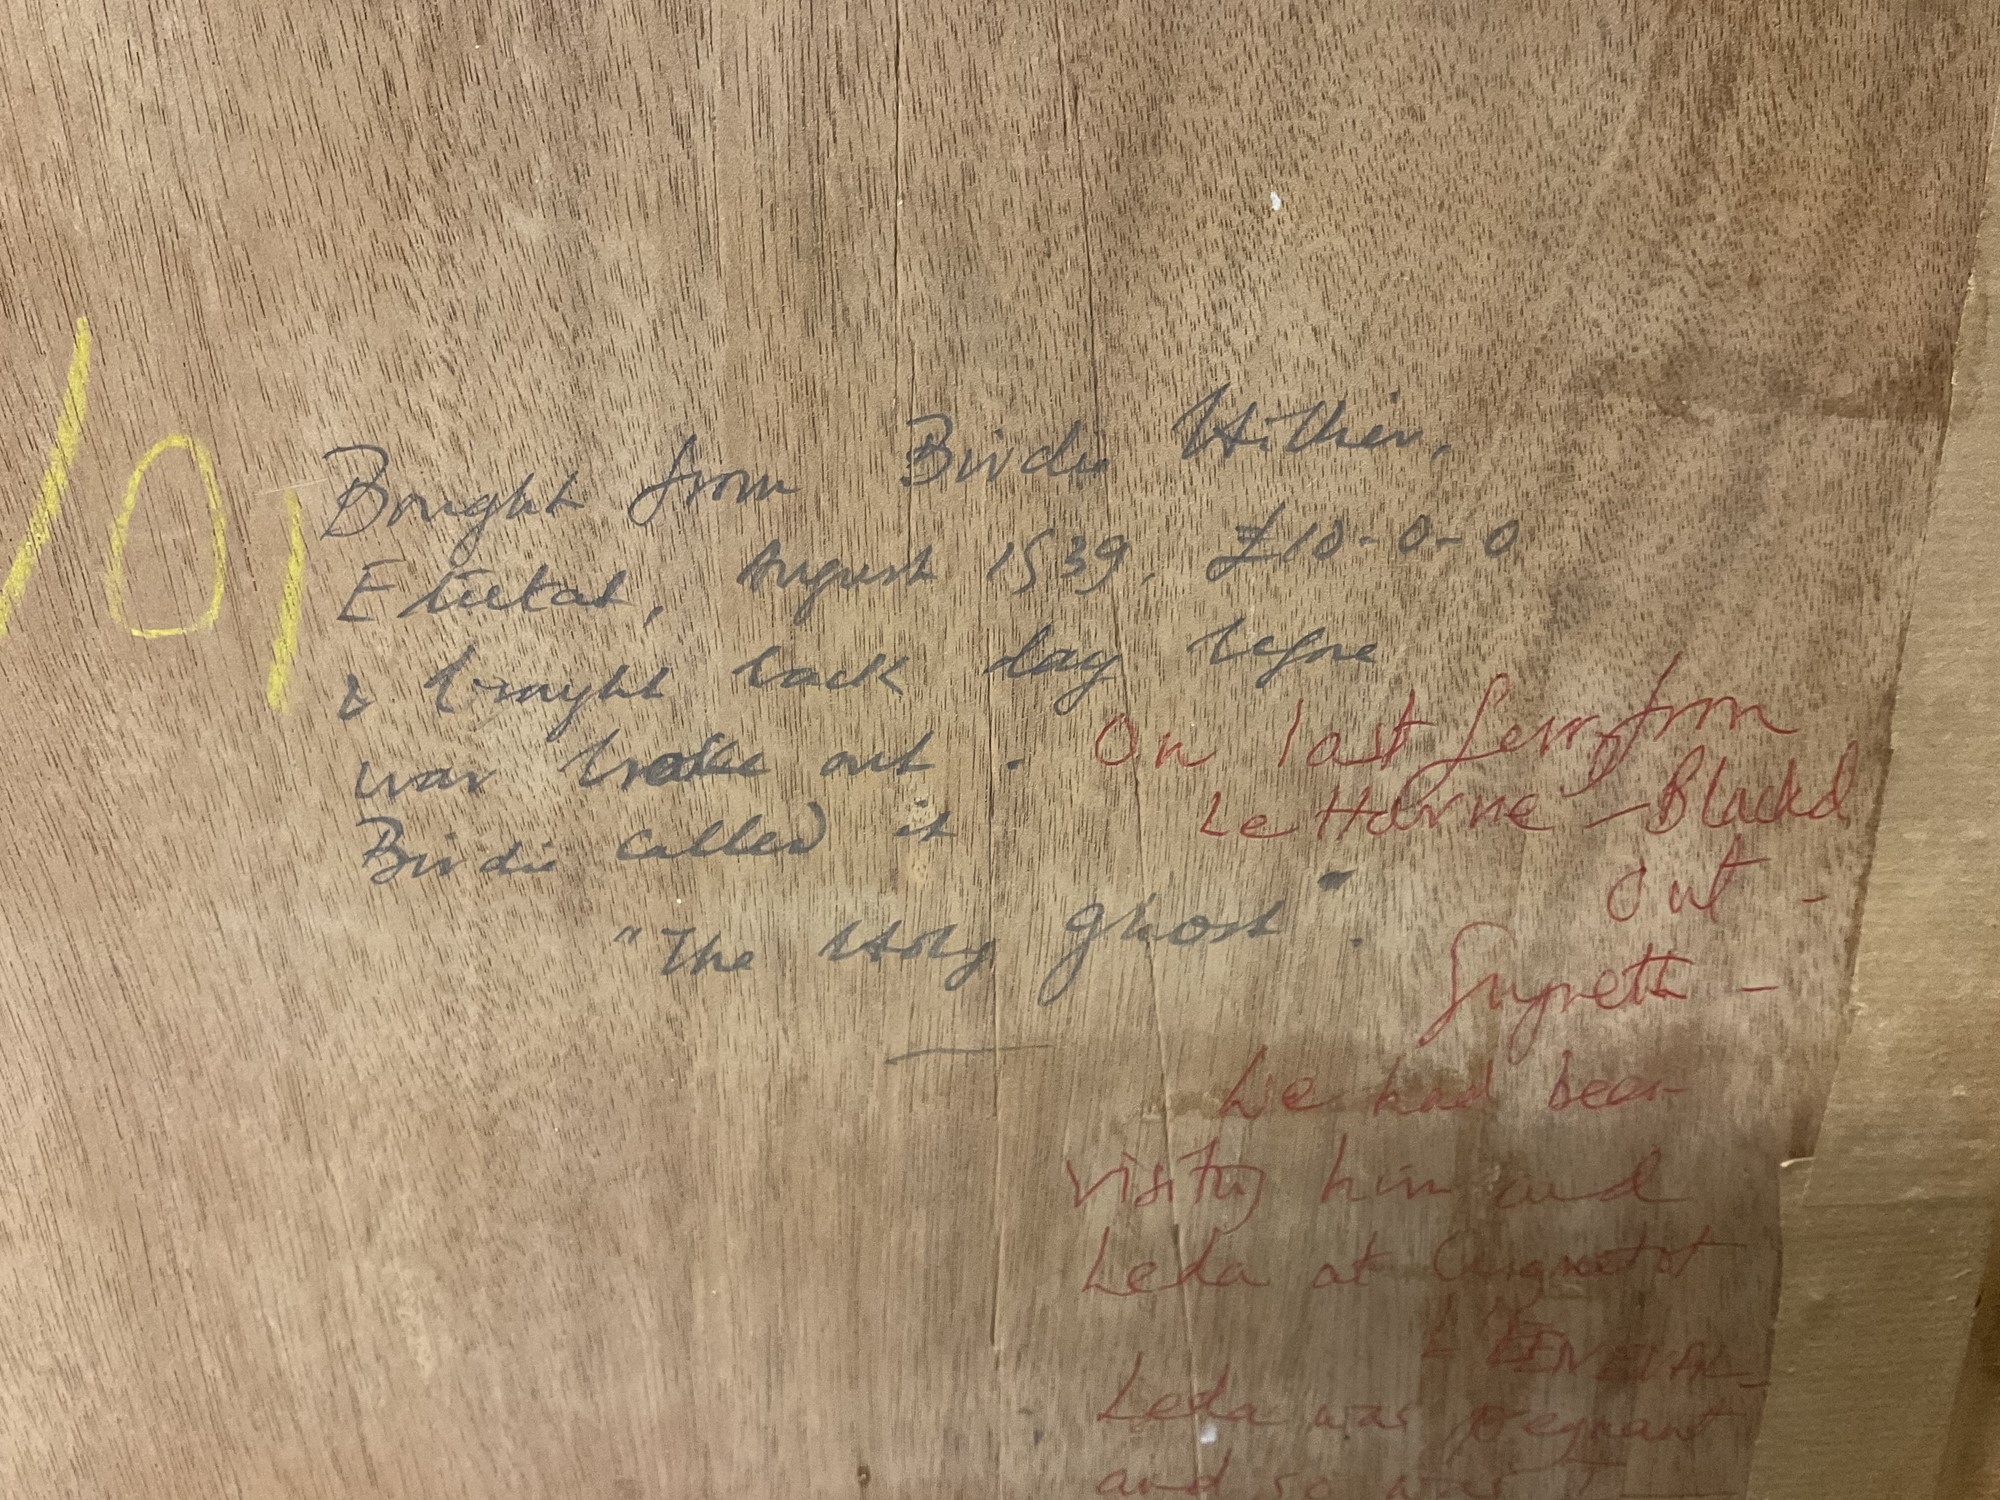 101
Bought from Birdie Hillier,
Etretat, August 1939, £10-0-0
& brought back day before
war broke out. On last ferry from
Le Havre - Blackd
out -
Birdie called it
"The Holy Ghost".
he had been
visiting him and
Leda at
Leda was pregnant
and so was I